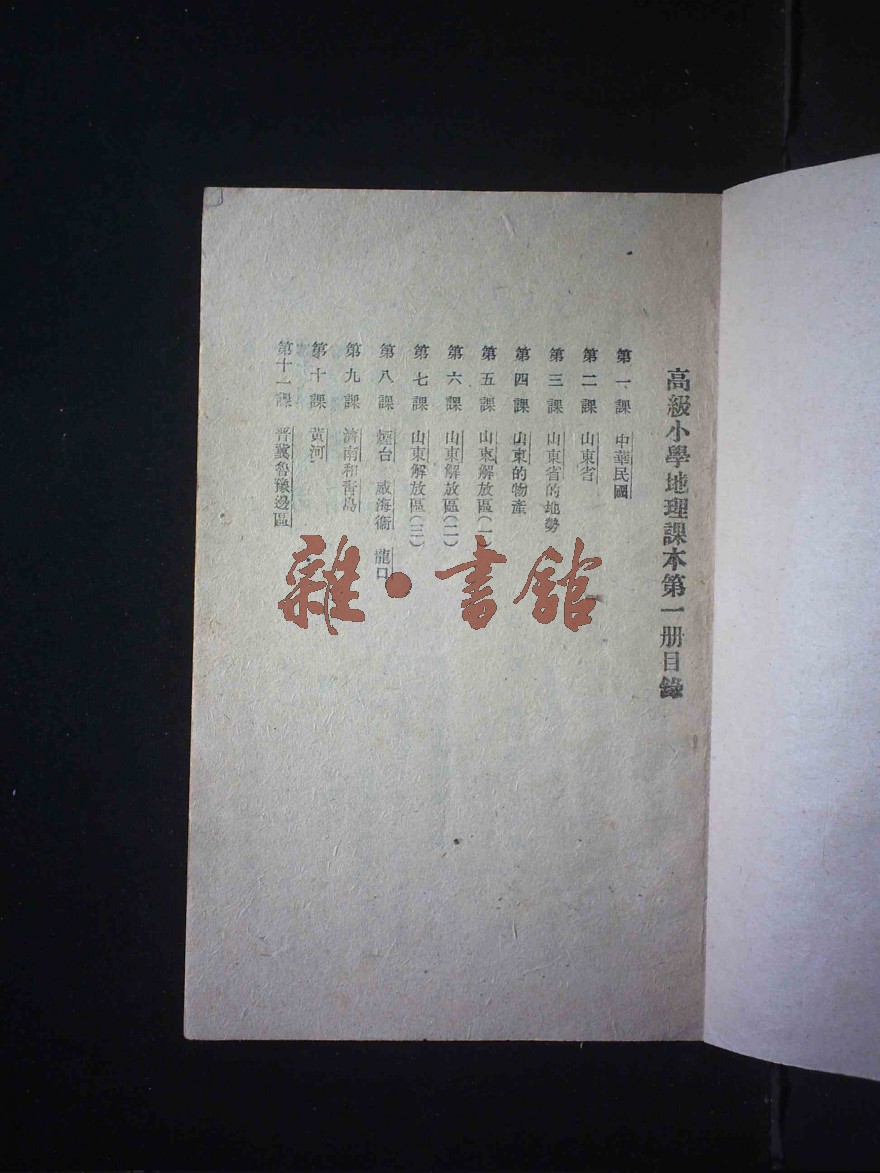 高級小學地理課本第一册目錄
第一課 中華民國
第二課 山東省
第三課 山東省的地勢
第四課 山東的物產
第五課 山東解放區(一)
第六課 山東解放區(二)
第七課 山東解放區(三)
第八課 煙台 威海衞 龍口
第九課 濟南和靑島
第十課 黃河
第十一課 晉冀魯豫邊區
雜·書館